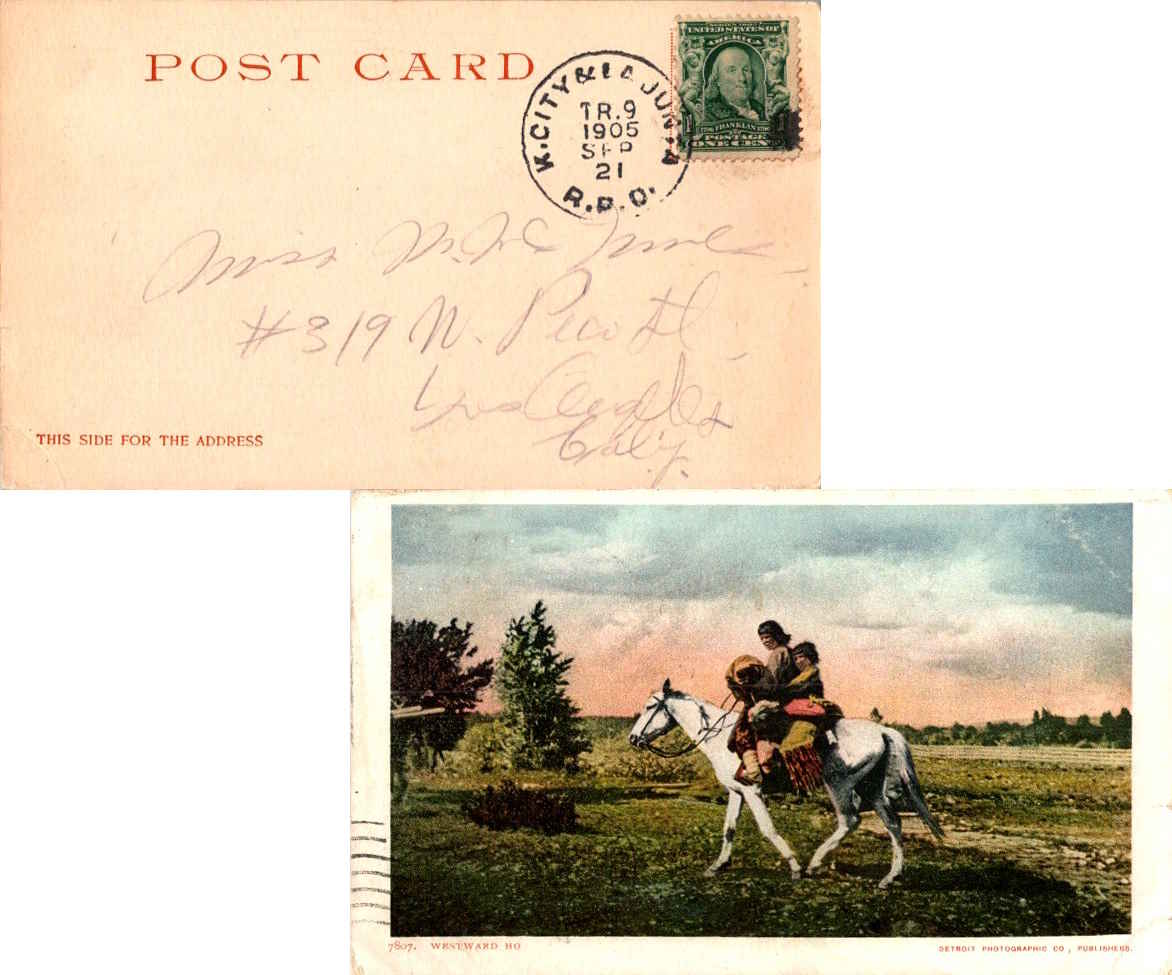 POST CARD
K. CITY & LA JUNTA
TR. 9
1905
SEP
21
R.P.O.
SERIES 1902
UNITED STATES OF
AMERICA
1706 FRANKLIN 1790
POSTAGE
1 ONE CENT 1
Miss M.
#319 N. Pico St.
Los Angeles
Calif.
THIS SIDE FOR THE ADDRESS
7807. WESTWARD HO
DETROIT PHOTOGRAPHIC CO., PUBLISHERS.